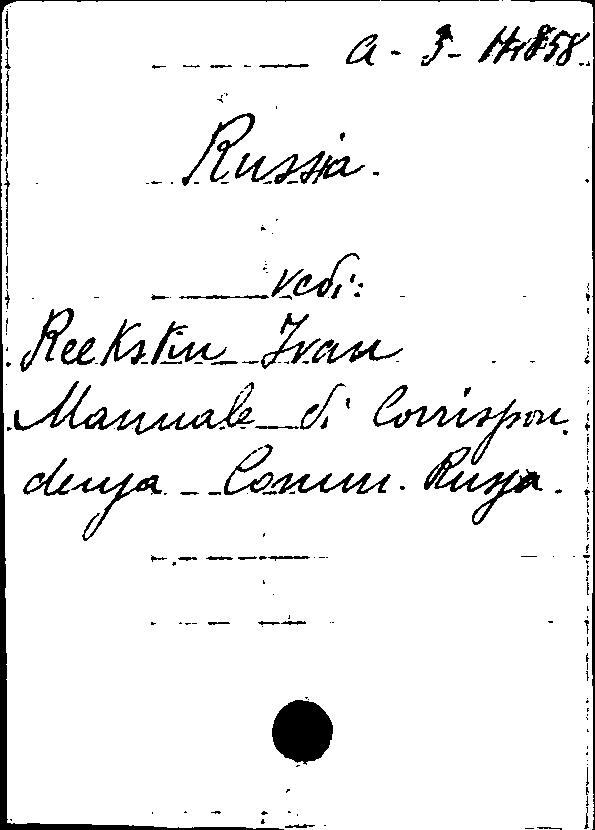 Russia.
vedi:
Reekstin Ivan
Manuale di Corrispon.
denza Comm. Russa.